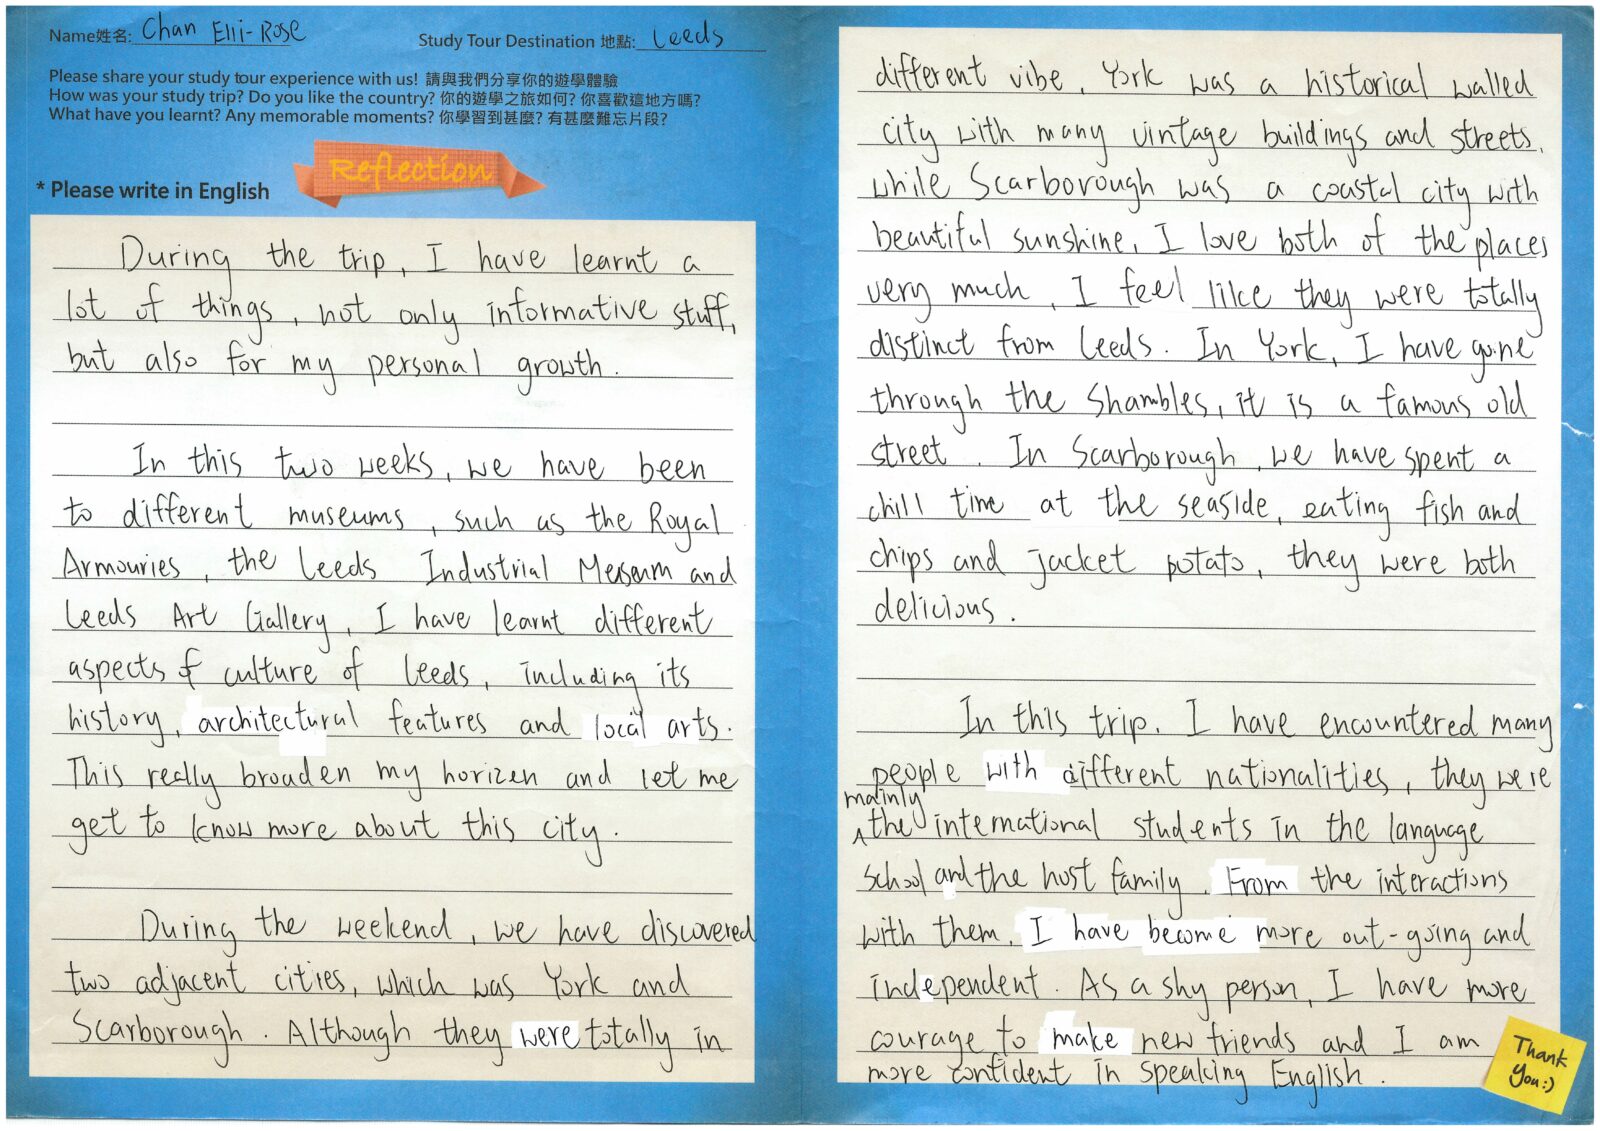 Name姓名: Chan Elli-Rose
Study Tour Destination 地點: Leeds
Please share your study tour experience with us! 請與我們分享你的遊學體驗
How was your study trip? Do you like the country? 你的遊學之旅如何? 你喜歡這地方嗎?
What have you learnt? Any memorable moments? 你學習到甚麼? 有甚麼難忘片段?
Reflection
* Please write in English
During the trip, I have learnt a
lot of things, not only informative stuff,
but also for my personal growth.
In this two weeks, we have been
to different museums, such as the Royal
Armouries, the Leeds Industrial Museum and
Leeds Art Gallery, I have learnt different
aspects of culture of Leeds, including its
history, architectural features and local arts.
This really broaden my horizen and let me
get to know more about this city.
During the weekend, we have discovered
two adjacent cities, which was York and
Scarborough. Although they were totally in
different vibe, York was a historical walled
city with many vintage buildings and streets,
while Scarborough was a coastal city with
beautiful sunshine, I love both of the places
very much, I feel like they were totally
distinct from Leeds. In York, I have gone
through the Shambles, it is a famous old
street. In Scarborough, we have spent a
chill time at the seaside, eating fish and
chips and jacket potato, they were both
delicious.
In this trip, I have encountered many
people with different nationalities, they were
mainly
^the international students in the language
school and the host family. From the interactions
with them, I have become more out-going and
independent. As a shy person, I have more
courage to make new friends and I am
more confident in speaking English.
Thank
You:)